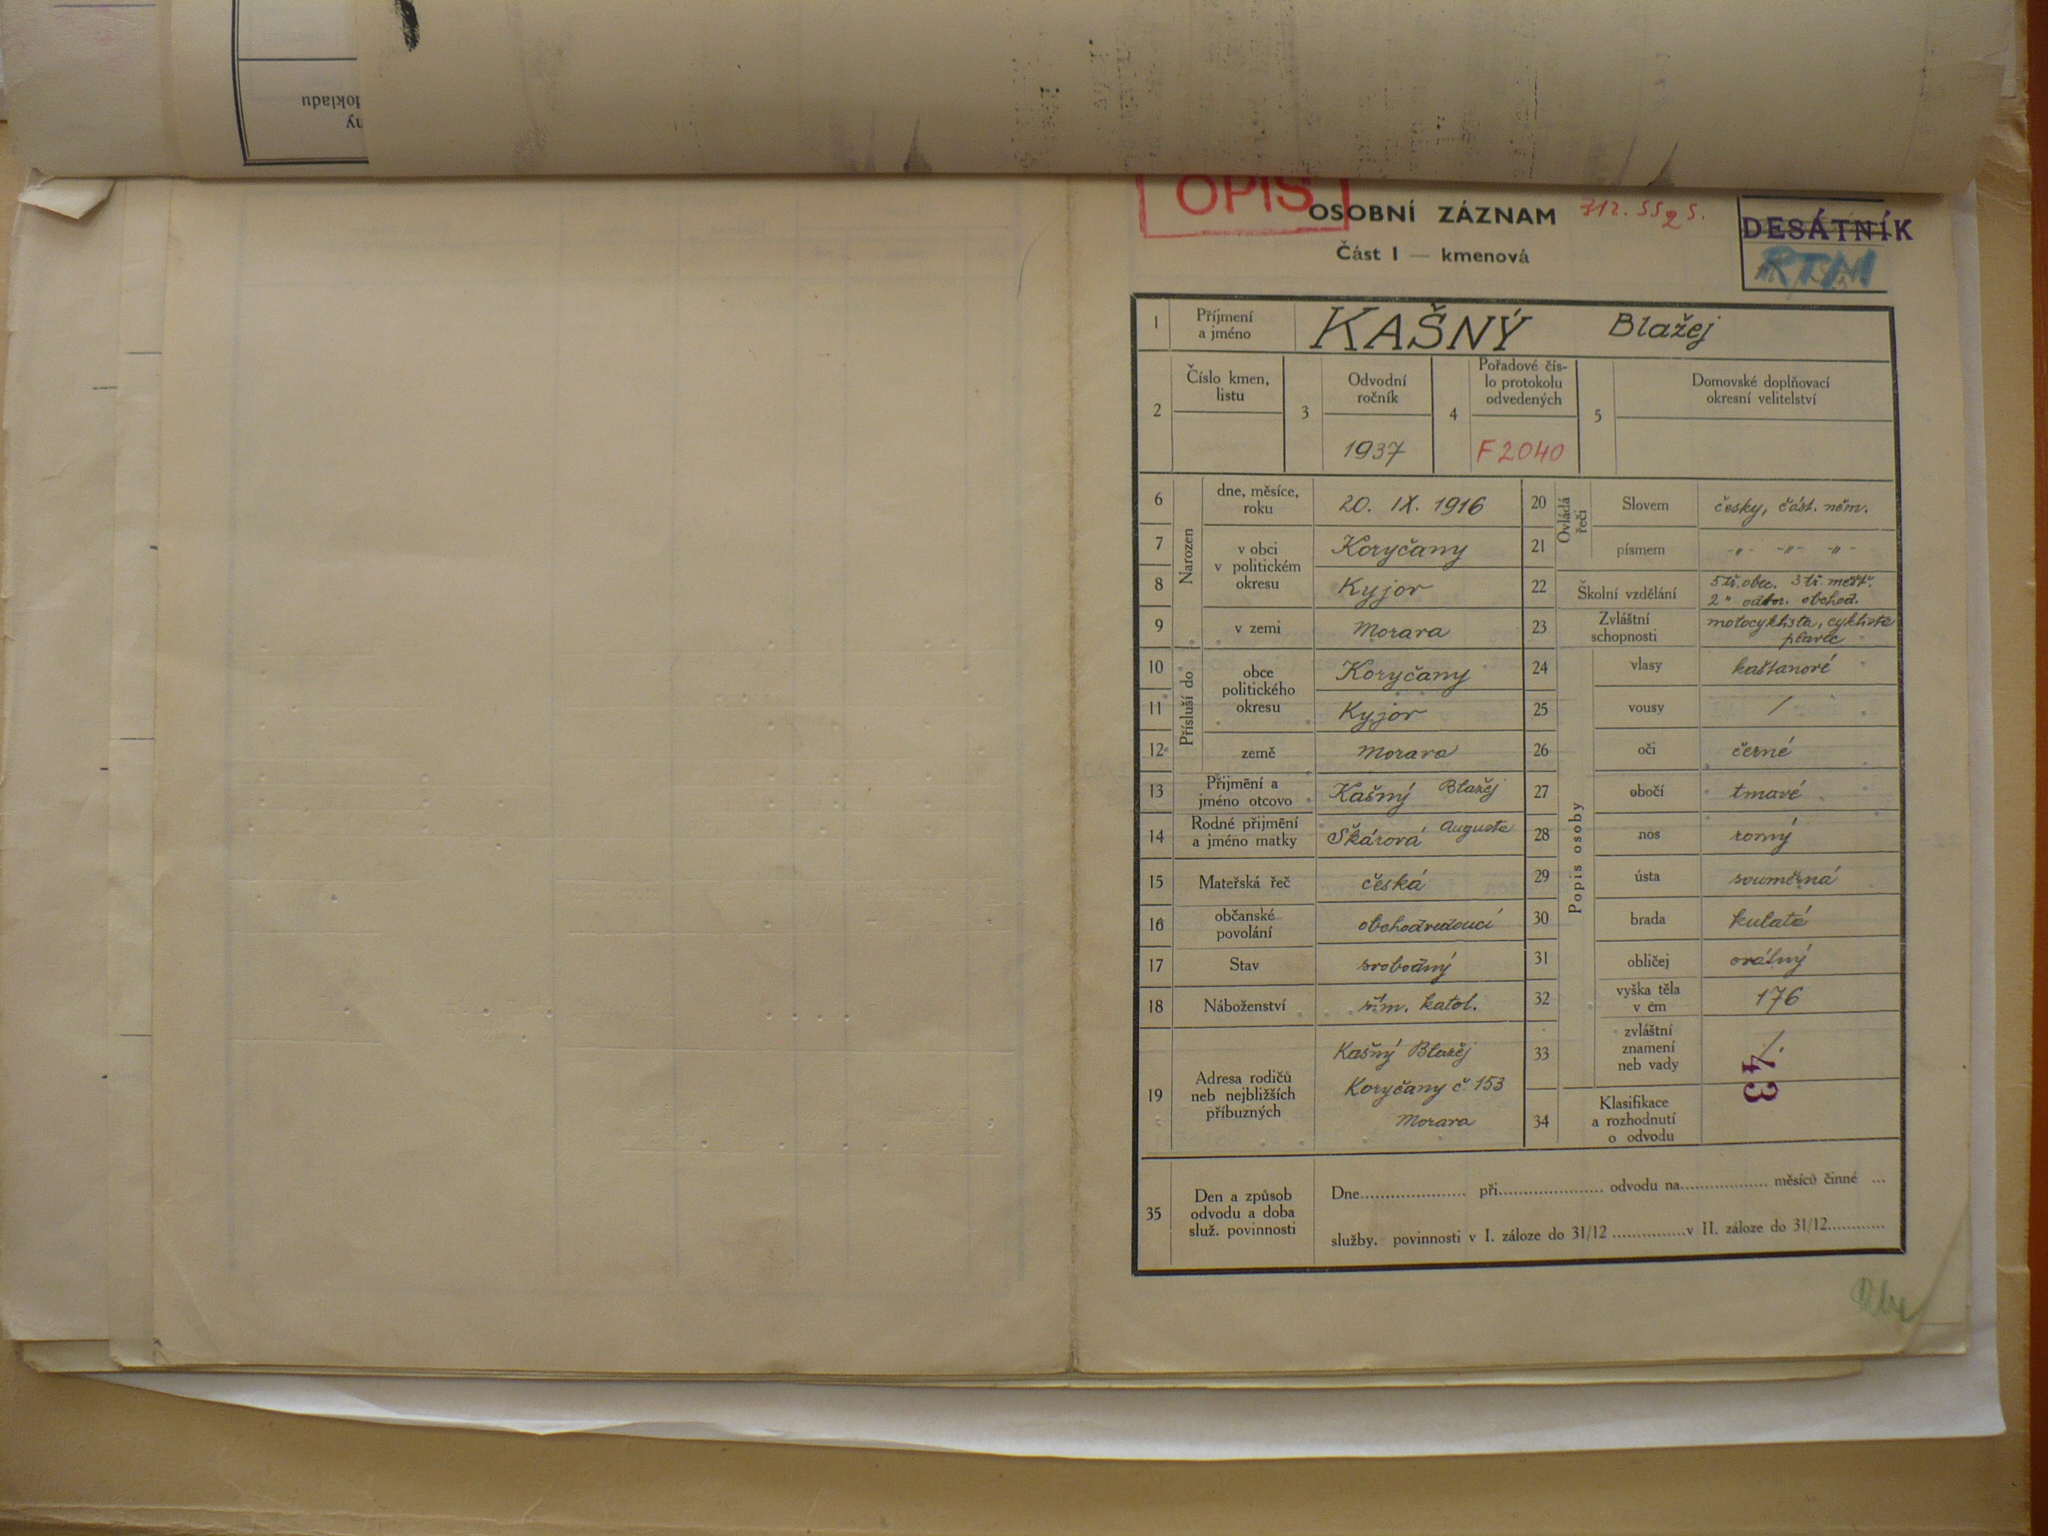 OPIS
OSOBNÍ ZÁZNAM
DESÁTNÍK
Část I — kmenová
RTM
1 Příjmení a jméno KAŠNÝ Blažej
2 Číslo kmen, listu
3 Odvodní ročník 1937
4 Pořadové čís-lo protokolu odvedených F 2040
5 Domovské doplňovací okresní velitelství
Narozen
6 dne, měsíce, roku 20. IX. 1916
7 v obci Koryčany
8 v politickém okresu Kyjov
9 v zemi Morava
Přísluší do
10 obce Koryčany
11 politického okresu Kyjov
12 země Morava
13 Přijmení a jméno otcovo Kašný Blažej
14 Rodné přijmění a jméno matky Škárová Augusta
15 Mateřská řeč česká
16 občanské povolání obchodvedoucí
17 Stav svobodný
18 Náboženství řím. katol.
19 Adresa rodičů neb nejbližších příbuzných
Kašný Blažej
Koryčany č. 153
Morava
Ovládá řeči
20 Slovem česky, část. něm.
21 písmem -"- -"- -"-
22 Školní vzdělání 5 tř. obec. 3 tř. měšť.
2 " odbor. obchod.
23 Zvláštní schopnosti motocyklista, cyklista
plavec
Popis osoby
24 vlasy kaštanové
25 vousy /
26 oči černé
27 obočí tmavé
28 nos rovný
29 ústa souměrná
30 brada kulatá
31 obličej oválný
32 výška těla v cm 176
33 zvláštní znamení neb vady /.
43
34 Klasifikace a rozhodnutí o odvodu
35 Den a způsob odvodu a doba služ. povinnosti
Dne...................... při...................... odvodu na.................. měsíců činné ...
služby. povinnosti v I. záloze do 31/12 ...............v II. záloze do 31/12............
dokladu